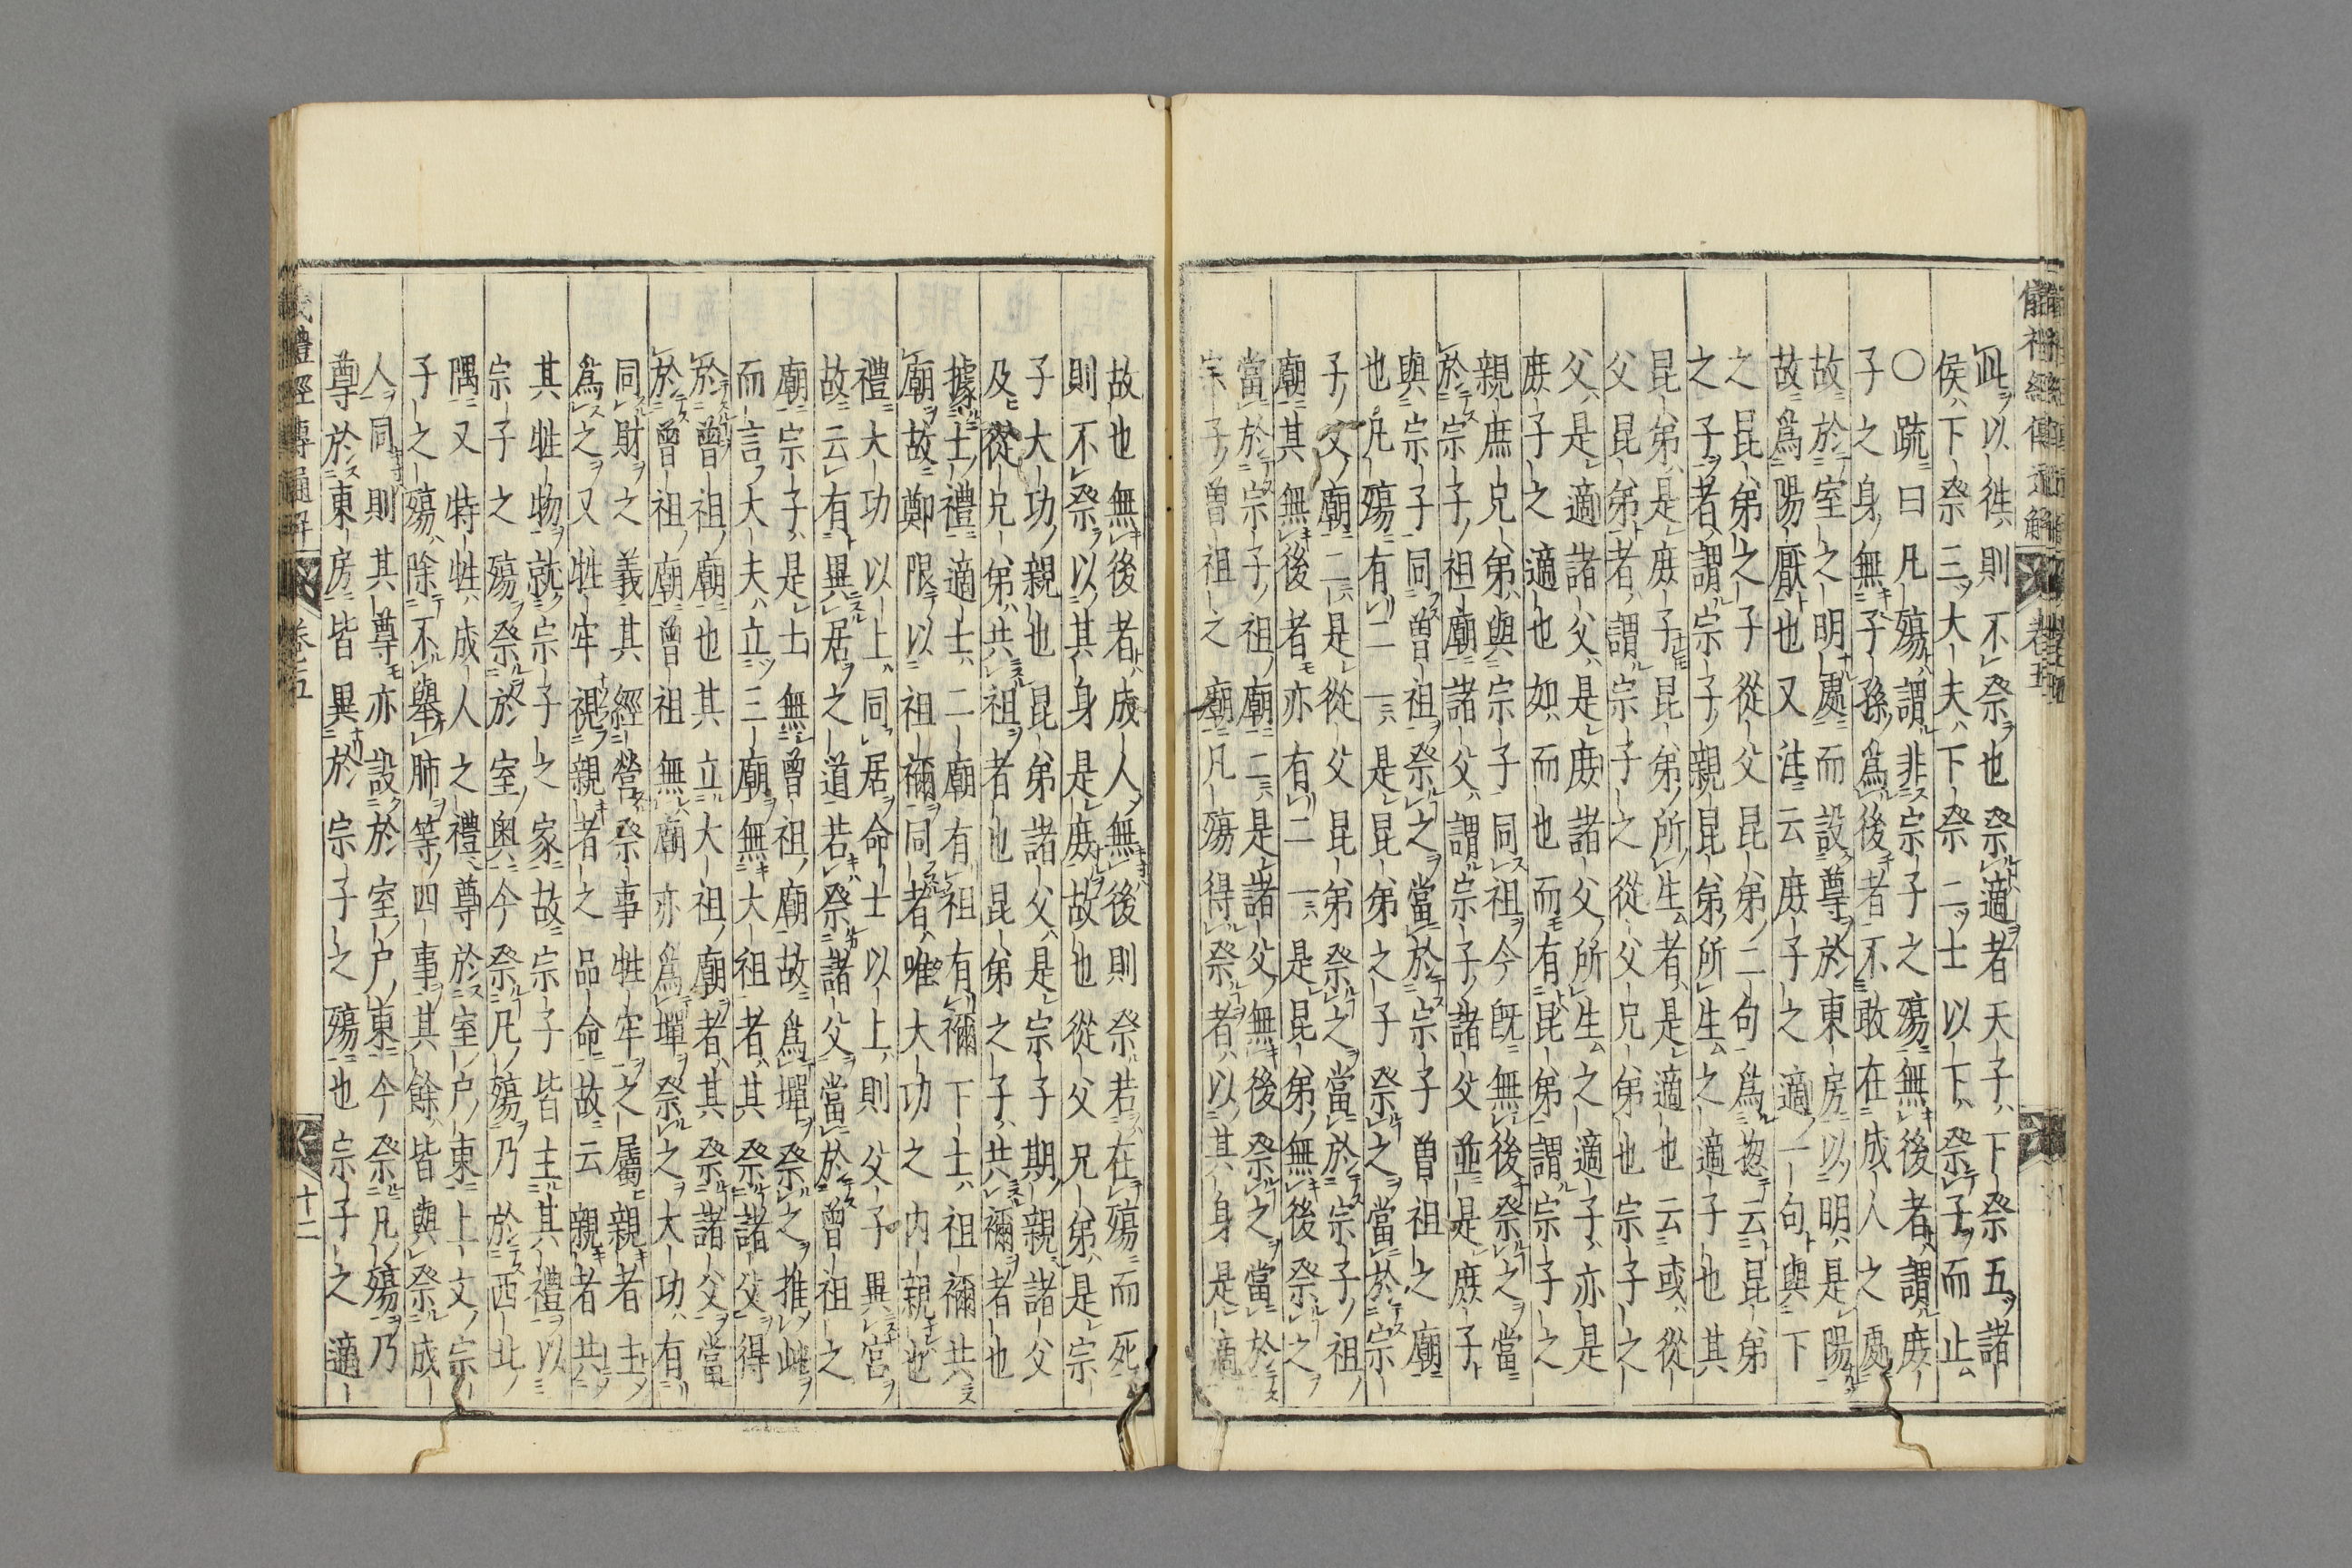 儀禮經傳通解 卷五
此以徃則不祭也祭適者天子下祭五諸
侯下祭三大夫下祭二士以下祭子而止
○疏曰凡殤謂非宗子之殤無後者謂庶
子之身無子孫爲後者不敢在成人之處
故於室之明處而設尊於東房以明是陽
故爲陽厭也又注云庶子之適一句與下
之昆弟之子從父昆弟二句爲揔云昆弟
之子者謂宗子親昆弟所生之適子也其
昆弟是庶子昆弟所生者是適也云或從
父昆弟者謂宗子之從父兄弟也宗子之
父是適諸父是庶諸父所生之適子亦是
庶子之適也如而也而有昆弟謂宗子之
親庶兄弟與宗子同祖今既無後祭之當
於宗子祖廟諸父謂宗子諸父並是庶子
與宗子同曽祖祭之當於宗子曽祖之廟
也凡殤有二一是昆弟之子祭之當於宗
子父廟二是從父昆弟祭之當於宗子祖
廟其無後者亦有二一是昆弟無後祭之
當於宗子祖廟二是諸父無後祭之當於
宗子曽祖之廟凡殤得祭者以其身是適
故也無後者成人無後則祭若在殤而死
則不祭以其身是庶故也從父兄弟是宗
子大功親也昆弟諸父是宗子期親諸父
及從兄弟共祖者也昆弟之子共禰者也
據士禮適士二廟有祖有禰下士祖禰共
廟故鄭限以祖禰同者唯大功之内親也
禮大功以上同居命士以上則父子異宮
故云有異居之道若祭諸父當於曾祖之
廟宗子是士無曾祖廟故爲墠祭之推此
而言大夫立三廟無大祖者其祭諸父得
於曾祖廟也其立大祖廟者其祭諸父當
於曾祖廟曾祖無廟亦爲墠祭之大功有
同財之義其經營祭事牲牢之屬親者主
爲之又牲牢視親者之品命故云親者共
其牲物就宗子之家故宗子皆主其禮以
宗子之殤祭於室奥今祭凡殤乃於西北
隅又特牲成人之禮尊於室户東上文宗
子之殤除不舉肺等四事其餘皆與祭成
人同則其尊亦設於室户東今祭凡殤乃
尊於東房皆異於宗子之殤也宗子之適
儀禮經傳通解 卷五 十二